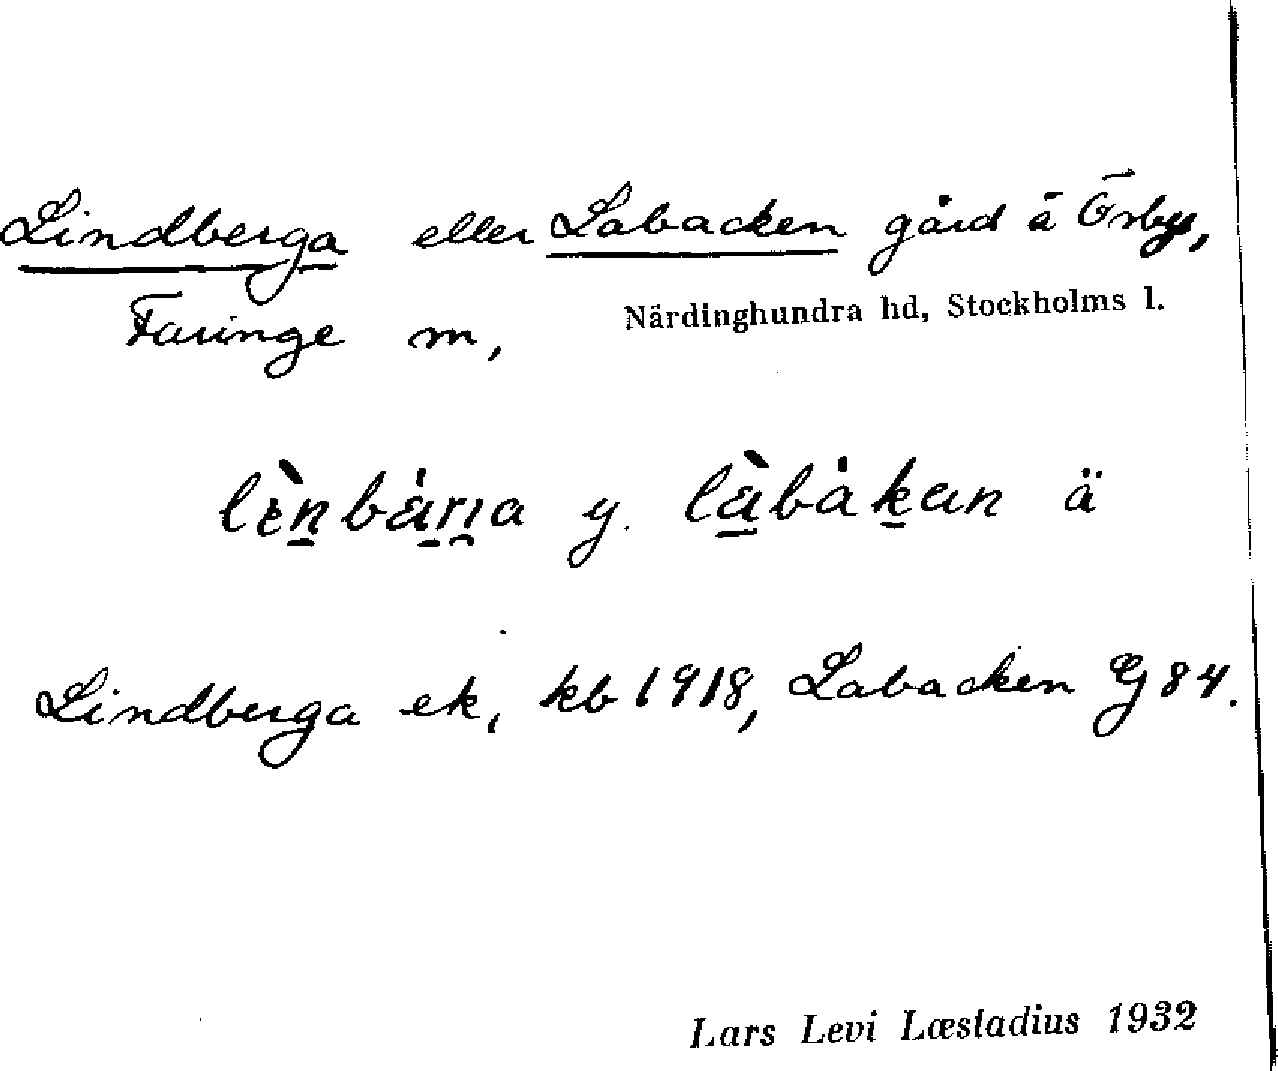 Lindberga eller Labacken gård å Örby,
Faringe m, Närdinghundra hd, Stockholms l.
y. ä
Lindberga ek, kb 1918, Labacken G 84.
Lars Levi Læstadius 1932